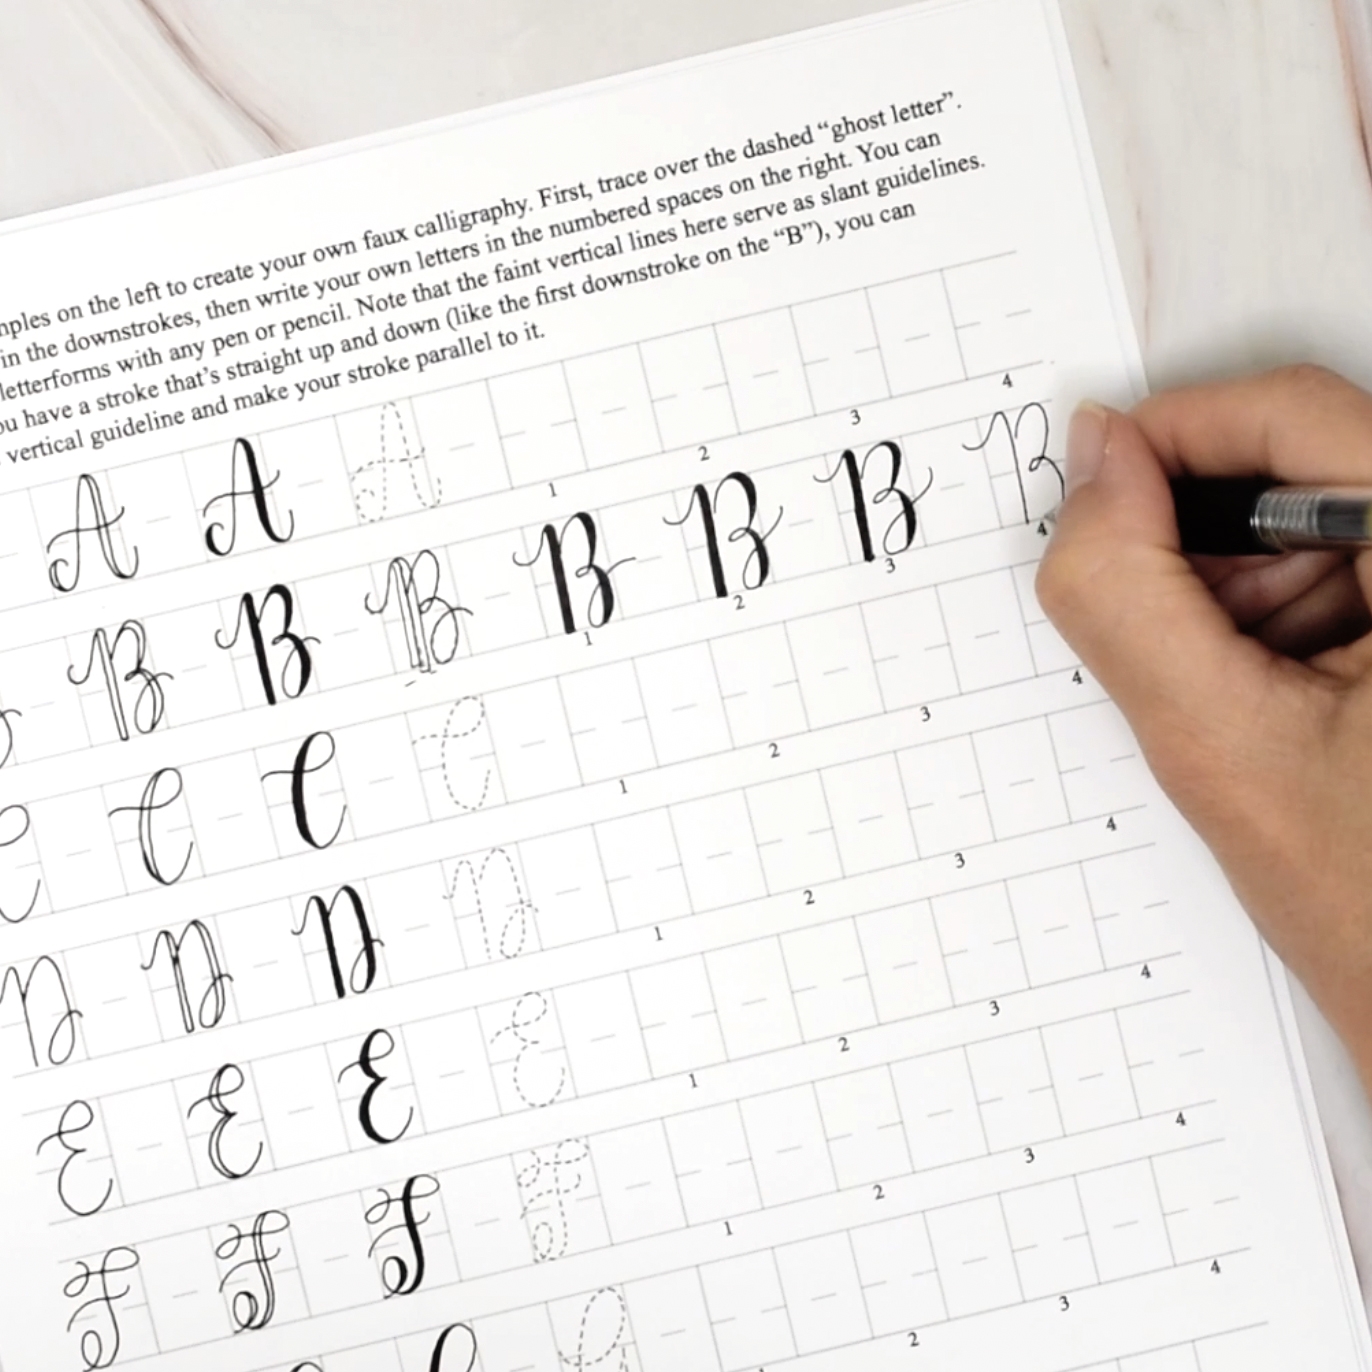 on the left to create your own faux calligraphy. First, trace over the dashed “ghost letter”.
in the downstrokes, then write your own letters in the numbered spaces on the right. You can
letterforms with any pen or pencil. Note that the faint vertical lines here serve as slant guidelines.
have a stroke that’s straight up and down (like the first downstroke on the “B”), you can
vertical guideline and make your stroke parallel to it.
A A A 1 2 3 4
B B B B B B B 1 2 3 4
C C C C 1 2 3 4
D D D D 1 2 3 4
E E E E 1 2 3 4
F F F F 1 2 3 4
2 3 4